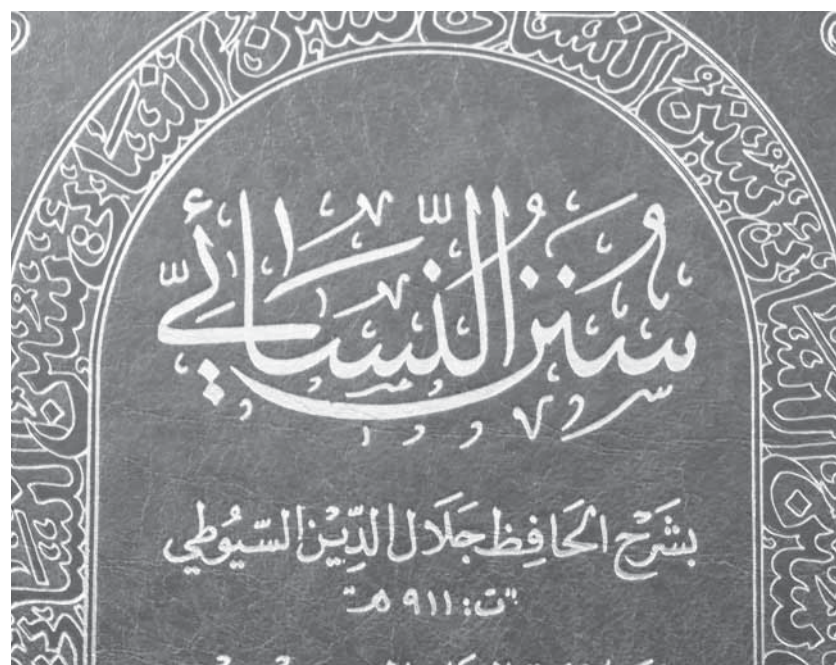 سُنَنُ النَّسَائِيِّ
بشَرْح الحَافِظ جَلَال الدِّيْن السّيُوطي
"ت: ٩١١ هـ"